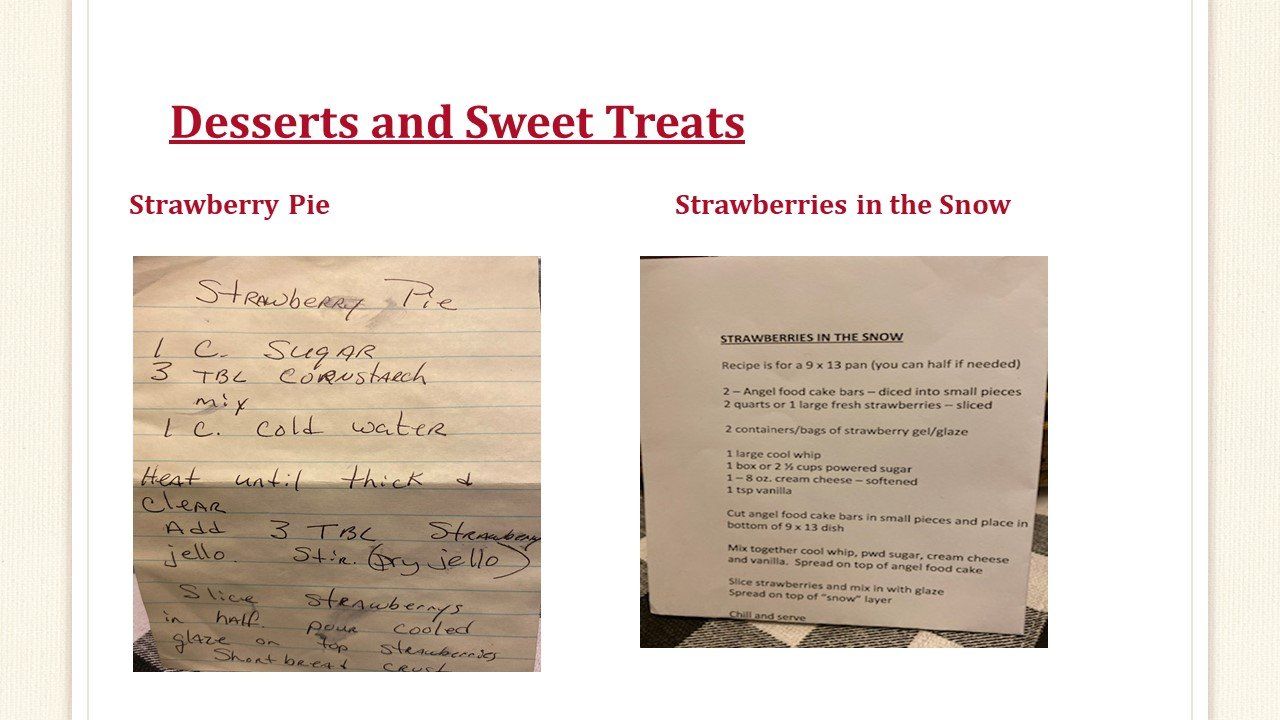 Desserts and Sweet Treats
Strawberry Pie
Strawberry Pie
1 C. Sugar
3 TBL Cornstarch
mix
1 C. cold water
Heat until thick &
Clear
Add 3 TBL Strawberry
jello. Stir. (Dry jello)
Slice strawberrys
in half. pour cooled
glaze on top strawberries
Shortbread crust
Strawberries in the Snow
STRAWBERRIES IN THE SNOW
Recipe is for a 9 x 13 pan (you can half if needed)
2 – Angel food cake bars – diced into small pieces
2 quarts or 1 large fresh strawberries – sliced
2 containers/bags of strawberry gel/glaze
1 large cool whip
1 box or 2 ½ cups powered sugar
1 – 8 oz. cream cheese – softened
1 tsp vanilla
Cut angel food cake bars in small pieces and place in
bottom of 9 x 13 dish
Mix together cool whip, pwd sugar, cream cheese
and vanilla. Spread on top of angel food cake
Slice strawberries and mix in with glaze
Spread on top of "snow" layer
Chill and serve